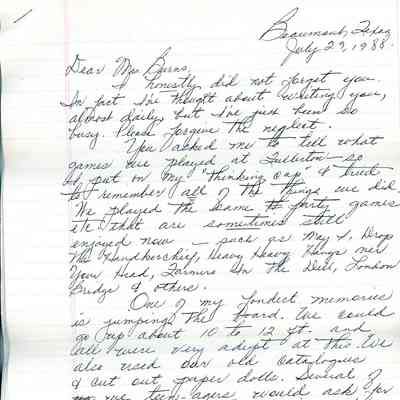 Beaumont, Texas
July 27, 1988.
Dear Mrs Burns,
I honestly did not forget you.
In fact I've thought about writing you,
almost daily, but I've just been so
busy. Please forgive the neglect.
You asked me to tell what
games we played at Fullerton - so
I put on my "thinking cap" & tried
to remember all of the things we did.
We played the same party games
etc that are sometimes still
enjoyed now — such as May I, Drop
the Handkerchief, Heavy Heavy Hangs over
Your Head, Farmers In the Dell, London
Bridge & others.
One of my fondest memories
is jumping the board. We could
go up about 10 to 12 ft. and
all were very adept at this. We
also used our old catalogues
& cut out paper dolls. Several of
we teen-agers would ask for